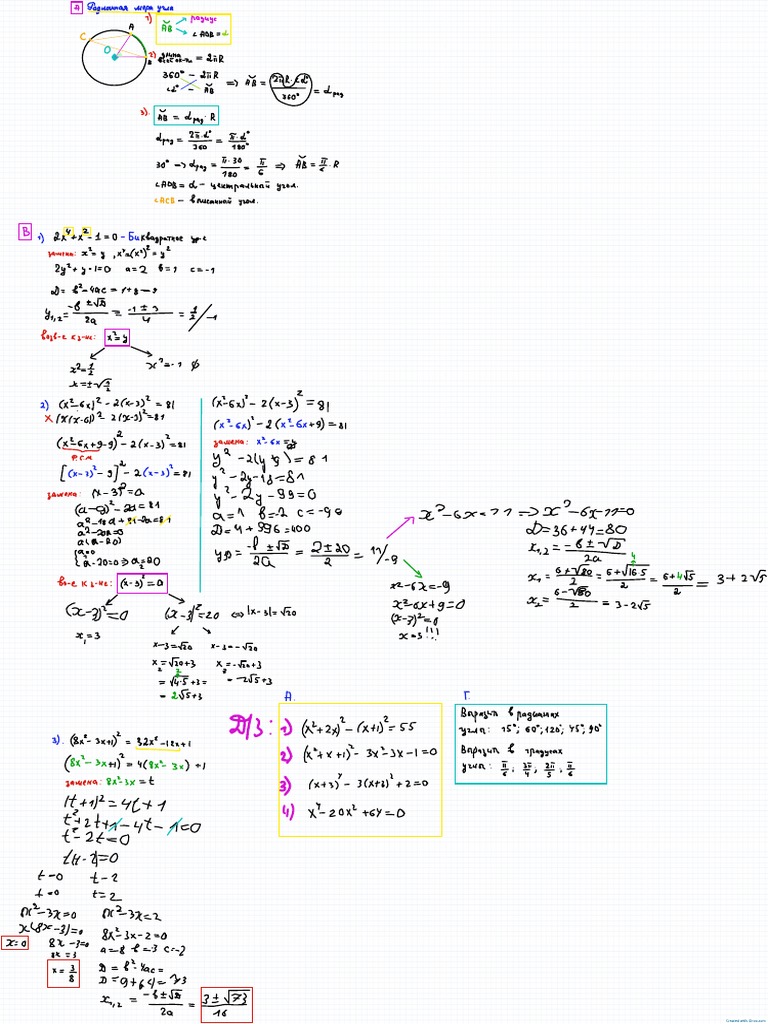 1)
A͝B
радиус
∠AOB = α
A
C
O
B
2) длина = 2πR
360° – 2πR
α° – A͝B
⇒ A͝B = 2πR·α°/360° = α рад
3). A͝B = α рад · R
α рад = 2π·α°/360 = π·α°/180°
30° → α рад = π·30/180 = π/6 ⇒ A͝B = π/6 · R
∠AOB = α – центральный угол.
∠ACB – вписанной угол.
В
1) 2x⁴ + x² – 1 = 0 – Биквадратное ур-е
замена: x² = y, x⁴ = (x²)² = y²
2y² + y – 1 = 0 a = 2 b = 1 c = –1
D = b² – 4ac = 1 + 8 = 9
y₁,₂ = –b ± √D/2a = –1 ± 3/4 = 1/2 / –1
возв-е к з-не: x² = y
x² = 1/2
x² = –1 ∅
x = ±√1/2
2) (x²–6x)² – 2(x–3)² = 81
x (x(x–6))² – 2(x–3)² = 81
(x²–6x+9–9)² – 2(x–3)² = 81
[(x–3)² – 9]² – 2(x–3)² = 81
замена: (x–3)² = a
(a–9)² – 2a = 81
a² – 18a + 81 – 2a = 81
a² – 20a = 0
a(a–20)
a = 0
a – 20 = 0 ⇒ a₂ = 20
во-е к з-не: (x–3)² = 0
(x–3)² = 0
(x–3)² = 20 ⇔ |x–3| = √20
x₁ = 3
x–3 = √20 x–3 = –√20
x₂ = √20+3 x₂ = –√20+3
= √4·5+3 = = –2√5+3
= 2√5+3
(x²–6x)² – 2(x–3)² = 81
(x²–6x)² – 2(x²–6x+9) = 81
замена: x²–6x = y
y² – 2(y+9) = 81
y² – 2y – 18 = 81
y² – 2y – 99 = 0
a = 1 b = –2 c = –99
D = 4 + 396 = 400
–b ± √D/2a = 2 ± 20/2 = 11 / –9
x² – 6x = 11 ⇒ x² – 6x – 11 = 0
D = 36 + 44 = 80
x₁,₂ = –b ± √D/2a
x₁ = 6+√80/2 = 6+√16·5/2 = 6+4√5/2 = 3+2√5
x₂ = 6–√80/2 = 3–2√5
x² – 6x = –9
x² – 6x + 9 = 0
(x–3)² = 0
x = 3 !!!
3). (8x² – 3x + 1)² = 32x² – 12x + 1
(8x² – 3x + 1)² = 4(8x² – 3x) + 1
замена: 8x² – 3x = t
(t+1)² = 4t + 1
t² + 2t + 1 – 4t – 1 = 0
t² – 2t = 0
t = 0 t = 2
x(8x–3) = 0
x = 0
8x – 3 = 0
8x = 3
x = 3/8
8x² – 3x – 2 = 0
a = 8 b = –3 c = –2
D = b² – 4ac =
D = 9 + 64 = 73
x₁,₂ = –b ± √D/2a = 3 ± √73/16
Д/З:
А.
1) (x²+2x)² – (x+1)² = 55
2) (x²+x+1)² – 3x² – 3x – 1 = 0
3) (x+3)⁴ – 3(x+3)² + 2 = 0
4) x⁴ – 20x² + 64 = 0
Г.
в радианах
углы: 15°; 60°; 120°; 45°; 90°
в градусах
углы: π/6; 3π/4; 2π/5; π/6